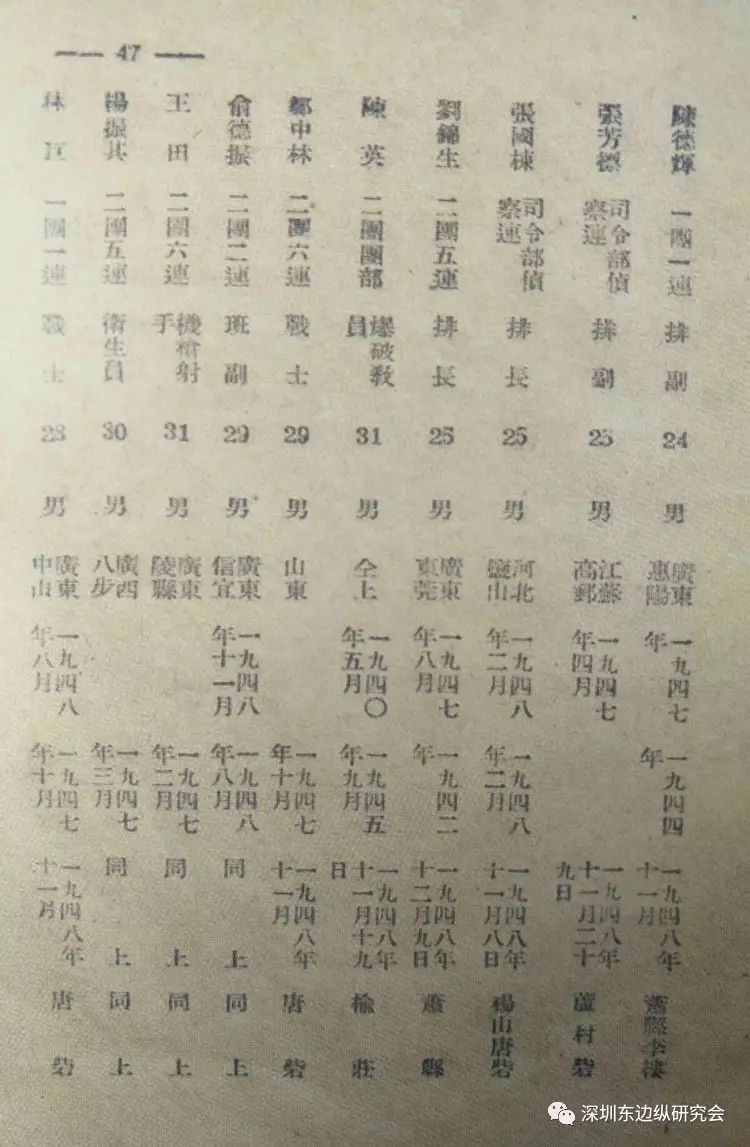 — 47 —
陳德輝 一團一連 排副 24 男 廣東惠陽 一九四七年 一九四四年 一九四八年十一月 蕭縣李樓
張芳標 司令部偵察連 排副 25 男 江蘇高郵 一九四七年四月 一九四八年十一月二十九日 蘆村砦
張國棟 司令部偵察連 排長 25 男 河北鹽山 一九四八年二月 一九四八年二月 一九四八年十一月八日 碭山唐砦
劉錦生 二團五連 排長 25 男 廣東東莞 一九四七年八月 一九四二年 一九四八年十二月九日 蕭縣
陳英 二團團部 爆破教員 31 男 仝上 一九四〇年五月 一九四五年九月 一九四八年十一月十九日 榆莊
鄭中林 二團六連 戰士 29 男 山東 一九四七年十月 一九四八年十一月 唐砦
俞德振 二團二連 班副 29 男 廣東信宜 一九四八年十一月 一九四八年八月 同上 同上
王田 二團六連 機槍射手 31 男 廣東陵縣 一九四七年二月 同上 同上
楊振其 二團五連 衛生員 30 男 廣西八步 一九四七年三月 同上 同上
林 一團一連 戰士 23 男 廣東中山 一九四八年八月 一九四七年十月 一九四八年十一月 唐砦
深圳东边纵研究会